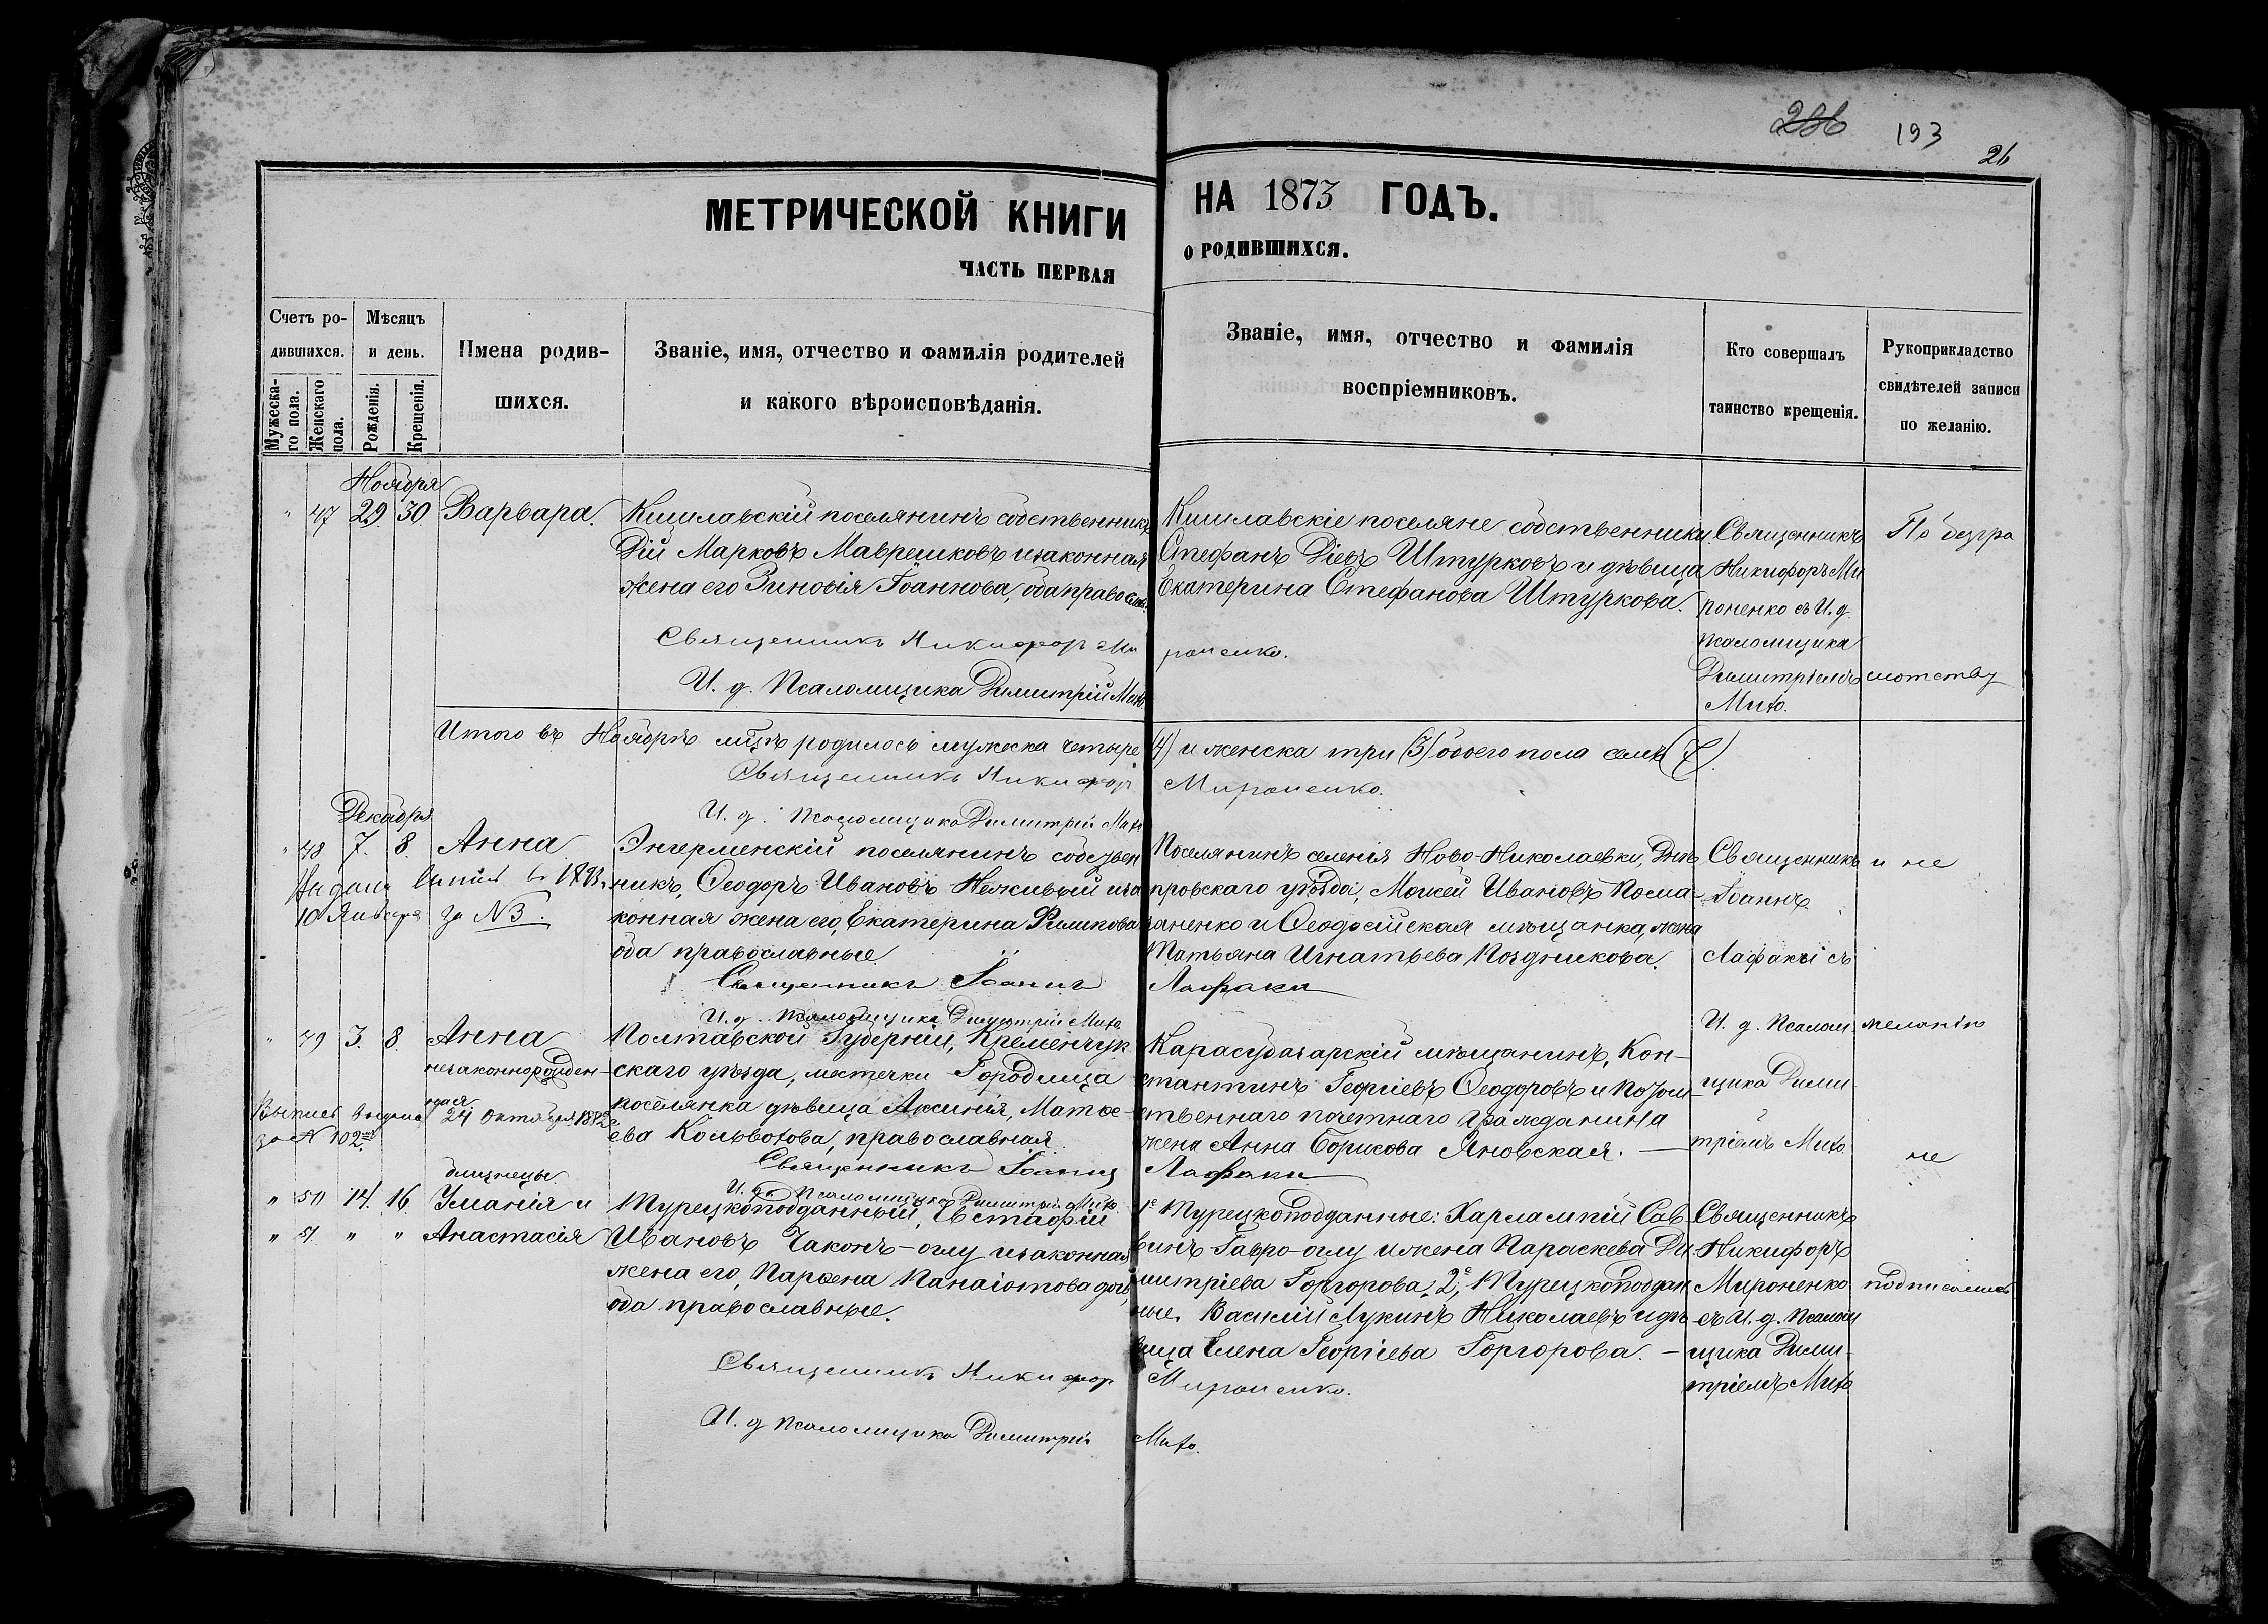 193
26
МЕТРИЧЕСКОЙ КНИГИ НА 1873 ГОДЪ.
ЧАСТЬ ПЕРВАЯ О РОДИВШИХСЯ.
Счетъ ро-
дившихся.
Мужеска-
го пола.
Женскаго
пола.
Мѣсяцъ
и день.
Рожденія.
Крещенія.
Имена родив-
шихся.
Званіе, имя, отчество и фамилія родителей
и какого вѣроисповѣданія.
Званіе, имя, отчество и фамилія
воспріемниковъ.
Кто совершалъ
таинство крещенія.
Рукоприкладство
свидѣтелей записи
по желанію.
Ноября
" 47 29 30 Варвара.
Кишлавскій поселянинъ собственникъ
Дій Марковъ Маврешковъ и законная
жена его Зиновія Іоаннова, оба правосл.
Священникъ Никифоръ Ми
роненко.
И. д. Псаломщика Димитрій Мито.
Кишлавскіе поселяне собственники
Стефанъ Діевъ Штурковъ и дѣвица
Екатерина Стефанова Штуркова.
Священникъ
Никифоръ Ми
роненко съ И. д.
псаломщика
Димитріемъ
Мито.
По безгра
мотству
Итого въ Ноябрѣ мцѣ родилось мужеска четыре (4) и женска три (3) обоего пола семь (7).
Священникъ Никифоръ Мироненко.
И. д. Псаломщика Димитрій Мито
Декабря
" 48 7. 8. Анна
10 Января за № 3.
Энгерменскій поселянинъ собствен
никъ, Ѳеодоръ Ивановъ Неживый и за
конная жена его, Екатерина Филипова
оба православные
Священникъ Іоаннъ Лафаки
И. д. Псаломщика Димитрій Мито
Поселянинъ селенія Ново-Николаевки, Днѣ
провскаго уѣзда, Мокей Ивановъ Пома-
заненко и Ѳеодосійская мѣщанка, жена
Татьяна Игнатьева Позднякова.
Священникъ
Іоаннъ
Лафаки съ
И. д. Псалом
щика Дими-
тріемъ Мито
и не
желанію
" 49 3. 8. Анна
незаконнорожден-
ная
24 Октября 1882
за № 102
Полтавской Губерніи, Кременчуг
скаго уѣзда, местечки Городища
поселянка дѣвица Аксинія, Матѳе-
ева Кольвотова, православная
Священникъ Іоаннъ Лафаки
И. д. Псаломщика Димитрій Мито.
Карасубазарскій мѣщанинъ, Кон-
стантинъ Георгіевъ Ѳеодоровъ и Потом-
ственнаго почетнаго гражданина
жена Анна Борисова Яновская.
не
близнецы.
" 50 14. 16. Уманія и
" 51 " " Анастасія
Турецкоподданный, Евстафій
Ивановъ Чаконъ-оглу и законная
жена его, Парѳена Панаіотова дочь,
оба православные.
Священникъ Никифоръ Мироненко.
И. д. Псаломщика Димитрій Мито.
1е Турецкоподданные: Харлампій Сав
винъ Гавро-оглу и жена Параскева Ди
митріева Горгорова, 2е, Турецкоподдан
ные. Василій Лукинъ Николаевъ и дѣ
вица Елена Георгіева Горгорова.
Священникъ
Никифоръ
Мироненко
съ И. д. Псалом
щика Дими-
тріемъ Мито
подписались